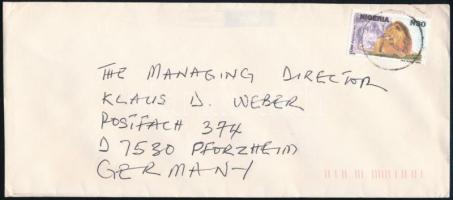 NIGERIA N30
THE MANAGING DIRECTOR
KLAUS D. WEBER
POSTFACH 374
D 7530 PFORZHEIM
GERMANY